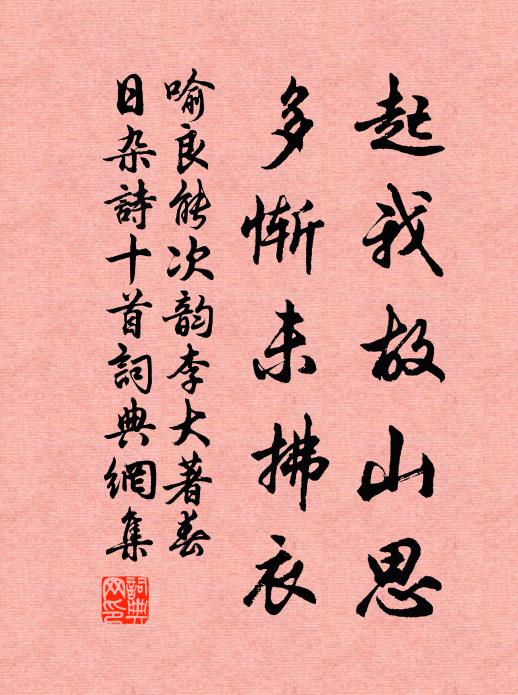 起我故山思
多慚未拂衣
喻良能次韵李大著春
日杂詩十首詞典網集
詞典